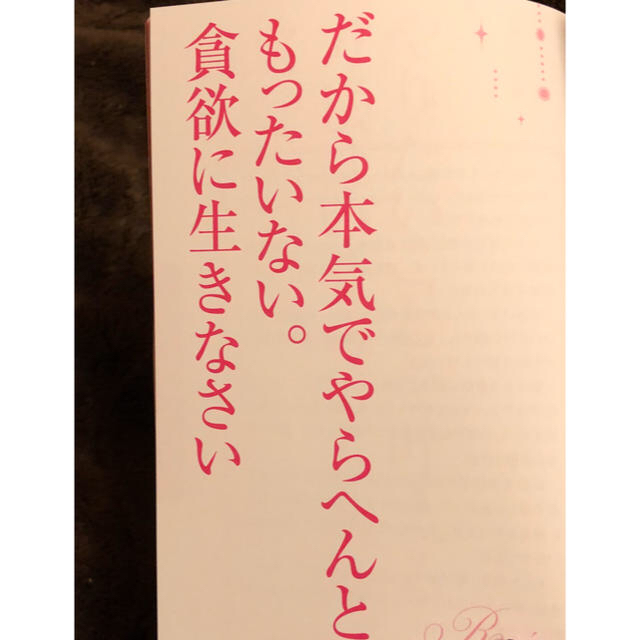 だから本気でやらへんと
もったいない。
貪欲に生きなさい